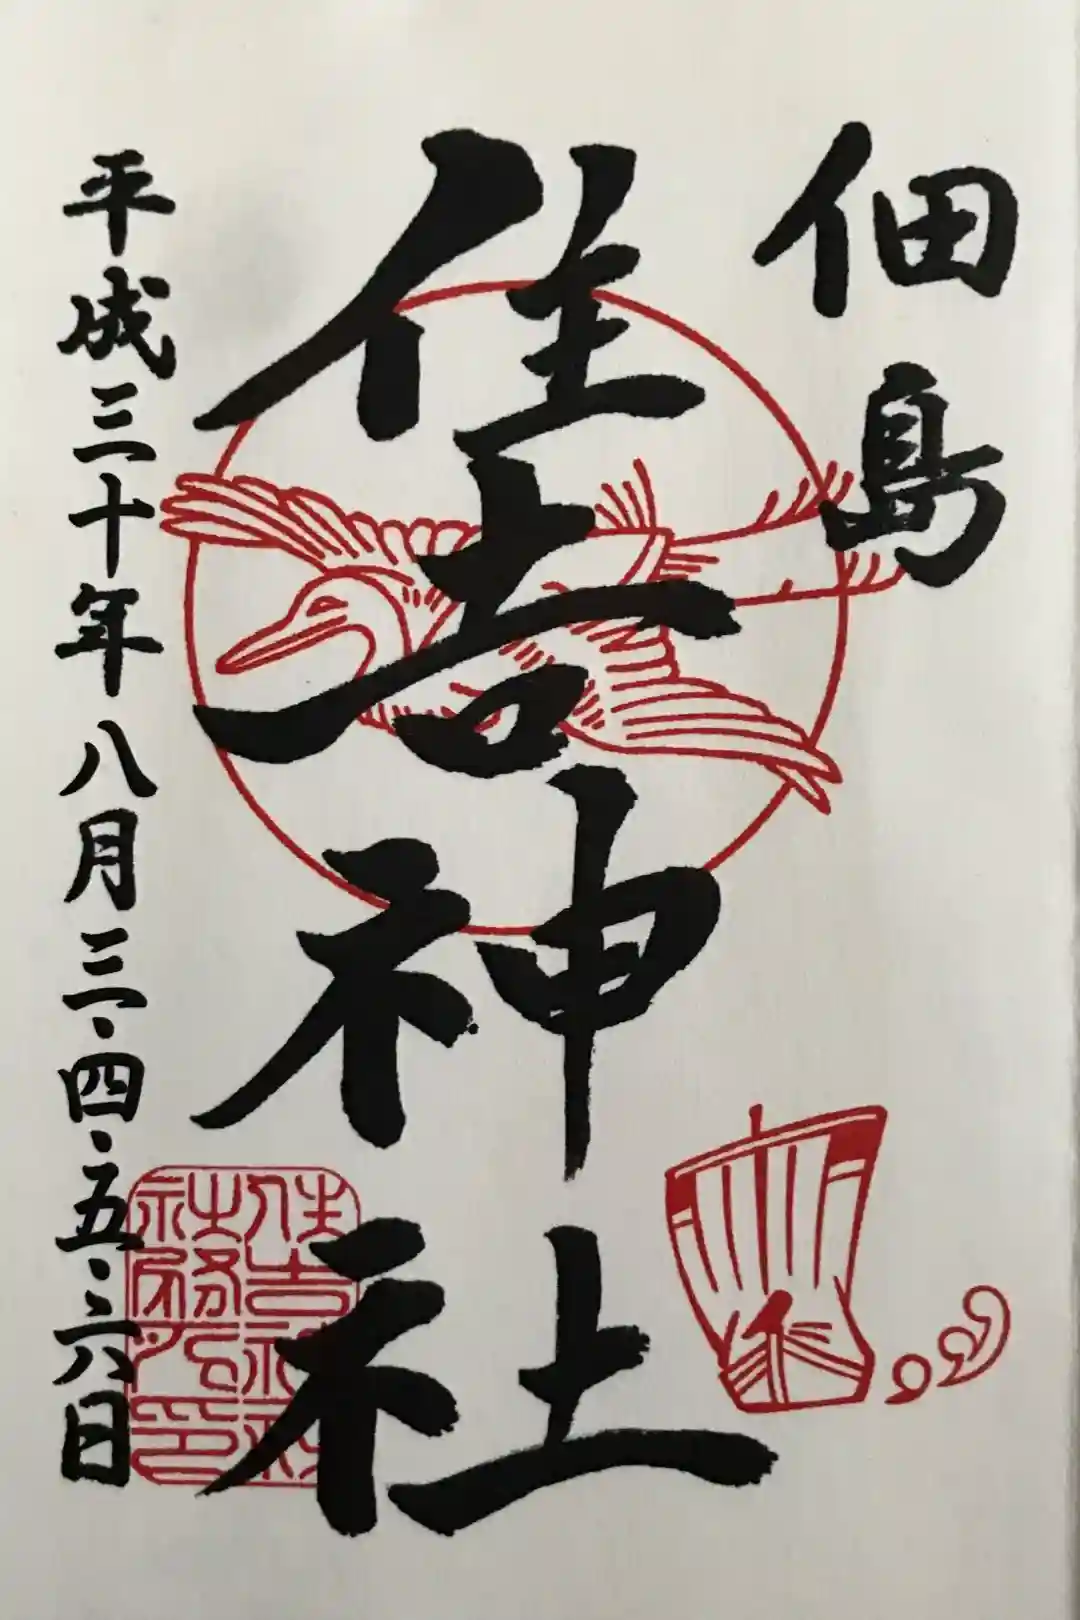 佃島
住吉神社
平成三十年八月三・四・五・六日
住吉神社
社務所之印